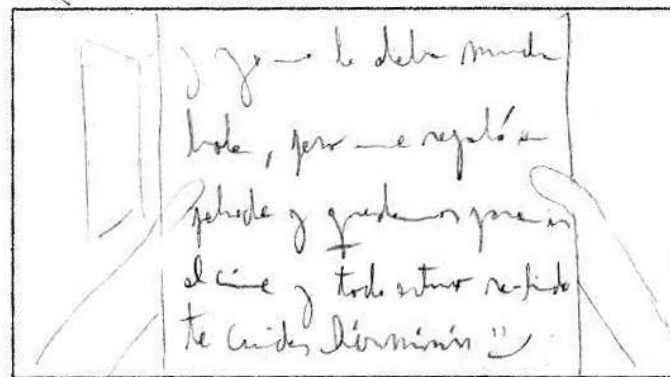 y yo no le daba mucha
bola, pero me regaló un
peluche y quedamos para ir
al cine y todo estuvo re lindo
te cuidas